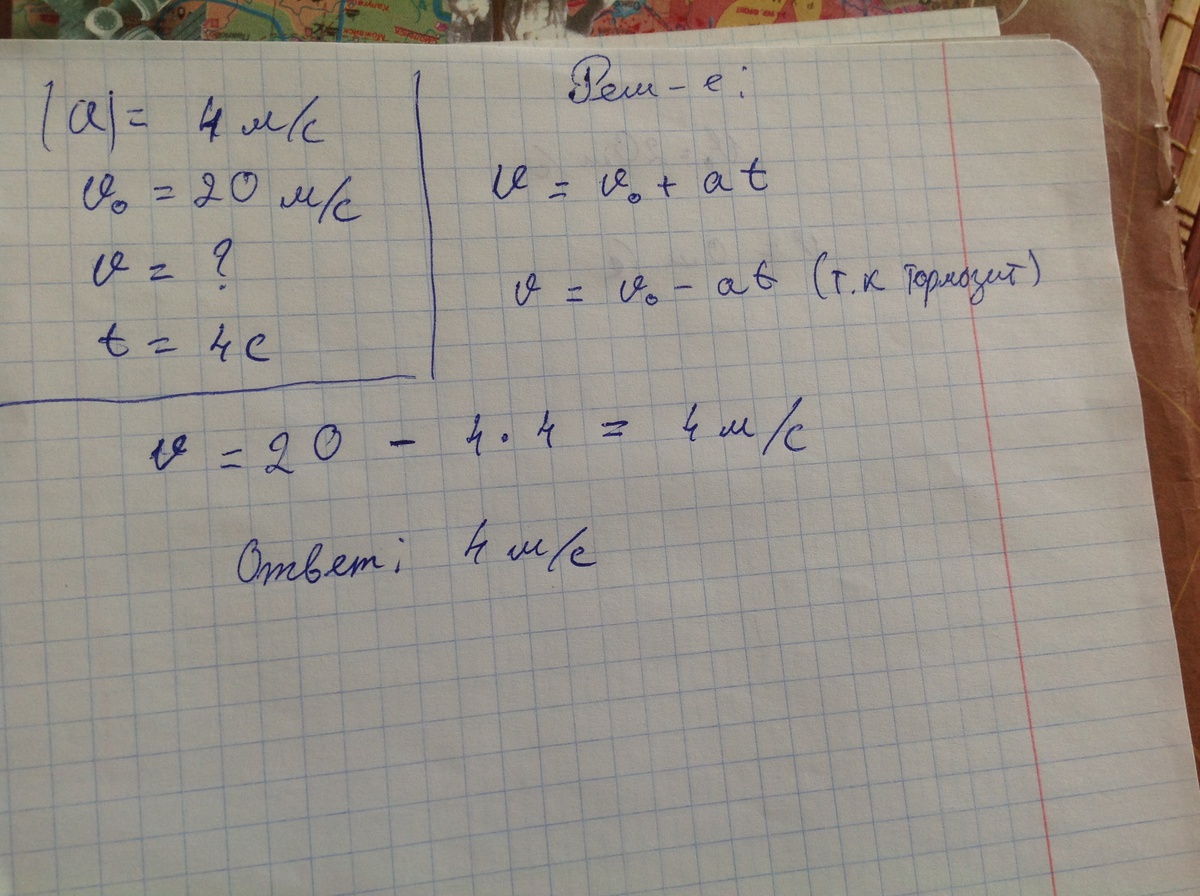 |a| = 4 м/с
v₀ = 20 м/с
v = ?
t = 4с
Реш-е:
v = v₀ + at
v = v₀ - at (т.к тормозит)
v = 20 - 4·4 = 4 м/с
Ответ: 4 м/с